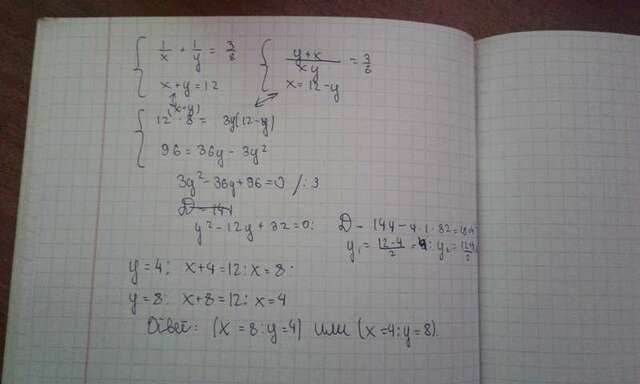 { 1/x + 1/y = 3/8 { (y+x)/(xy) = 3/8
{ x+y=12 { x=12-y
(x+y)
{ 12·8 = 3y(12-y)
{ 96 = 36y - 3y²
3y² - 36y + 96 = 0 /:3
y² - 12y + 32 = 0;
D = 144 - 4·1·32 =
y₁ = (12-4)/2 = 4; y₂ =
y = 4; x+4=12; x=8;
y = 8; x+8=12; x=4
Ответ: (x=8; y=4) или (x=4; y=8)